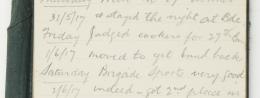 31/5/17 & stayed the night at
Friday Judged cookers for 27th
1/6/17 moved to get back
Saturday Brigade Sports very good
2/6/17 indeed - got 2nd place in